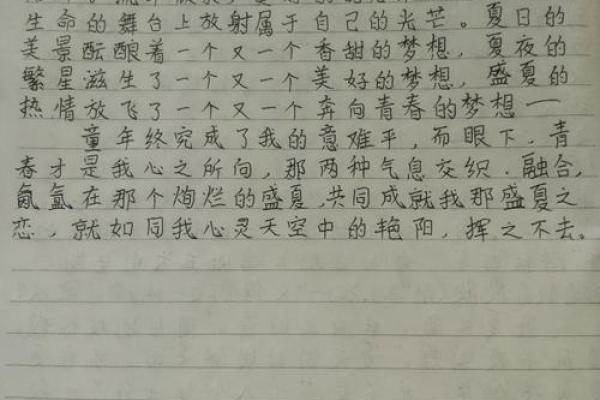 生命的舞台上放射属于自己的光芒。夏日的
美景酝酿着一个又一个香甜的梦想，夏夜的
繁星滋生了一个又一个美好的梦想，盛夏的
热情放飞了一个又一个奔向青春的梦想一
童年终究成了我的意难平，而眼下，青
春才是我心之所向，那两种气息交织．融合，
氤氲在那个炯烂的盛夏，共同成就我那盛夏之
恋，就如同我心灵天空中的艳阳，挥之不去。